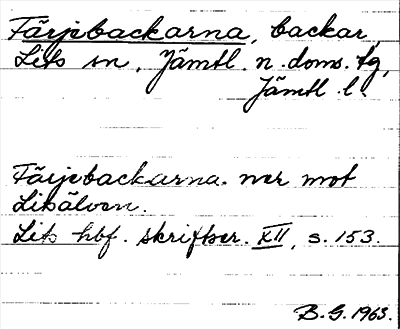 Färjebackarna, backar,
Lits sn, Jämtl. n. doms. tg,
Jämtl. l.
Färjebackarna. ner mot
Litsälven.
Lits hbf. skriftser. XII, s. 153.
B. G. 1963.